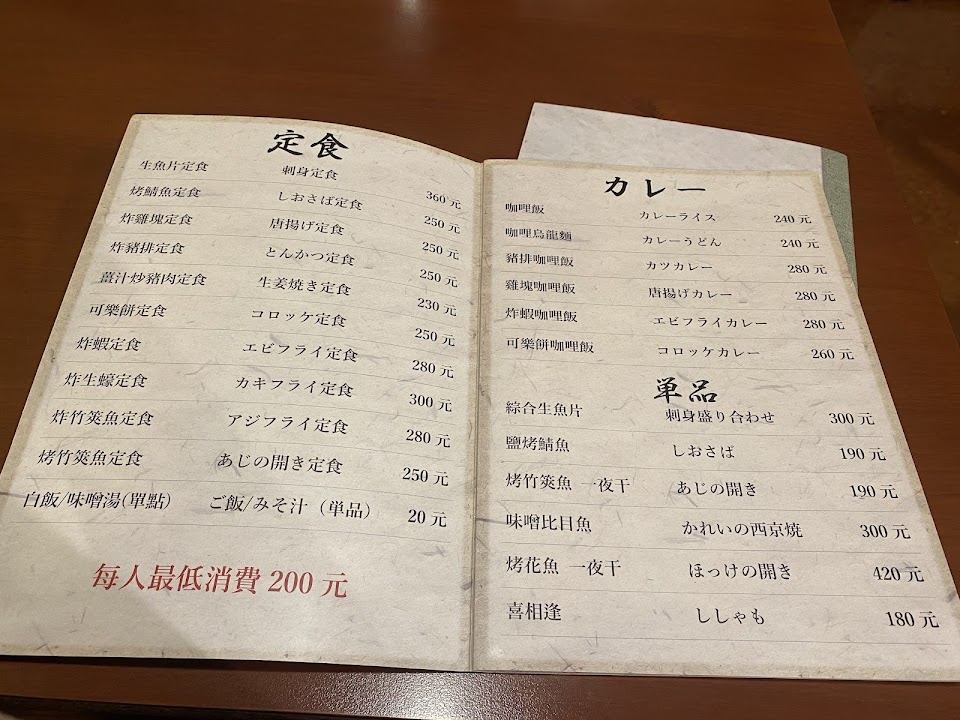 定食
生魚片定食 刺身定食 360元
烤鯖魚定食 しおさば定食 250元
炸雞塊定食 唐揚げ定食 250元
炸豬排定食 とんかつ定食 250元
薑汁炒豬肉定食 生姜焼き定食 230元
可樂餅定食 コロッケ定食 250元
炸蝦定食 エビフライ定食 280元
炸生蠔定食 カキフライ定食 300元
炸竹筴魚定食 アジフライ定食 280元
烤竹筴魚定食 あじの開き定食 250元
白飯/味噌湯(單點) ご飯/みそ汁（単品） 20元
每人最低消費 200 元
カレー
咖哩飯 カレーライス 240元
咖哩烏龍麵 カレーうどん 240元
豬排咖哩飯 カツカレー 280元
雞塊咖哩飯 唐揚げカレー 280元
炸蝦咖哩飯 エビフライカレー 280元
可樂餅咖哩飯 コロッケカレー 260元
単品
綜合生魚片 刺身盛り合わせ 300元
鹽烤鯖魚 しおさば 190元
烤竹筴魚 一夜干 あじの開き 190元
味噌比目魚 かれいの西京焼 300元
烤花魚 一夜干 ほっけの開き 420元
喜相逢 ししゃも 180元